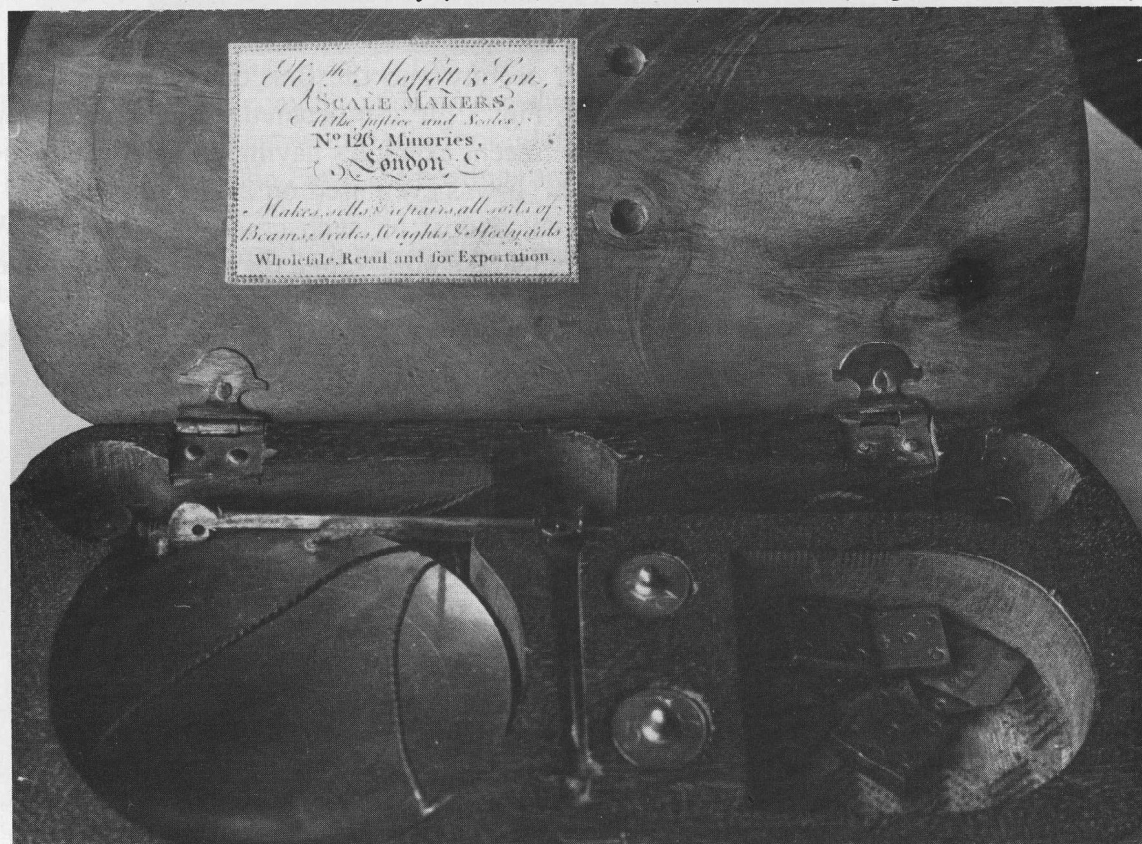 Eli.th Moffett & Son,
SCALE MAKERS,
At the Justice and Scales,
No. 126, Minories,
London
Makes, sells & repairs, all sorts of
Beams, Scales, Weights & Steelyards
Wholesale, Retail and for Exportation.